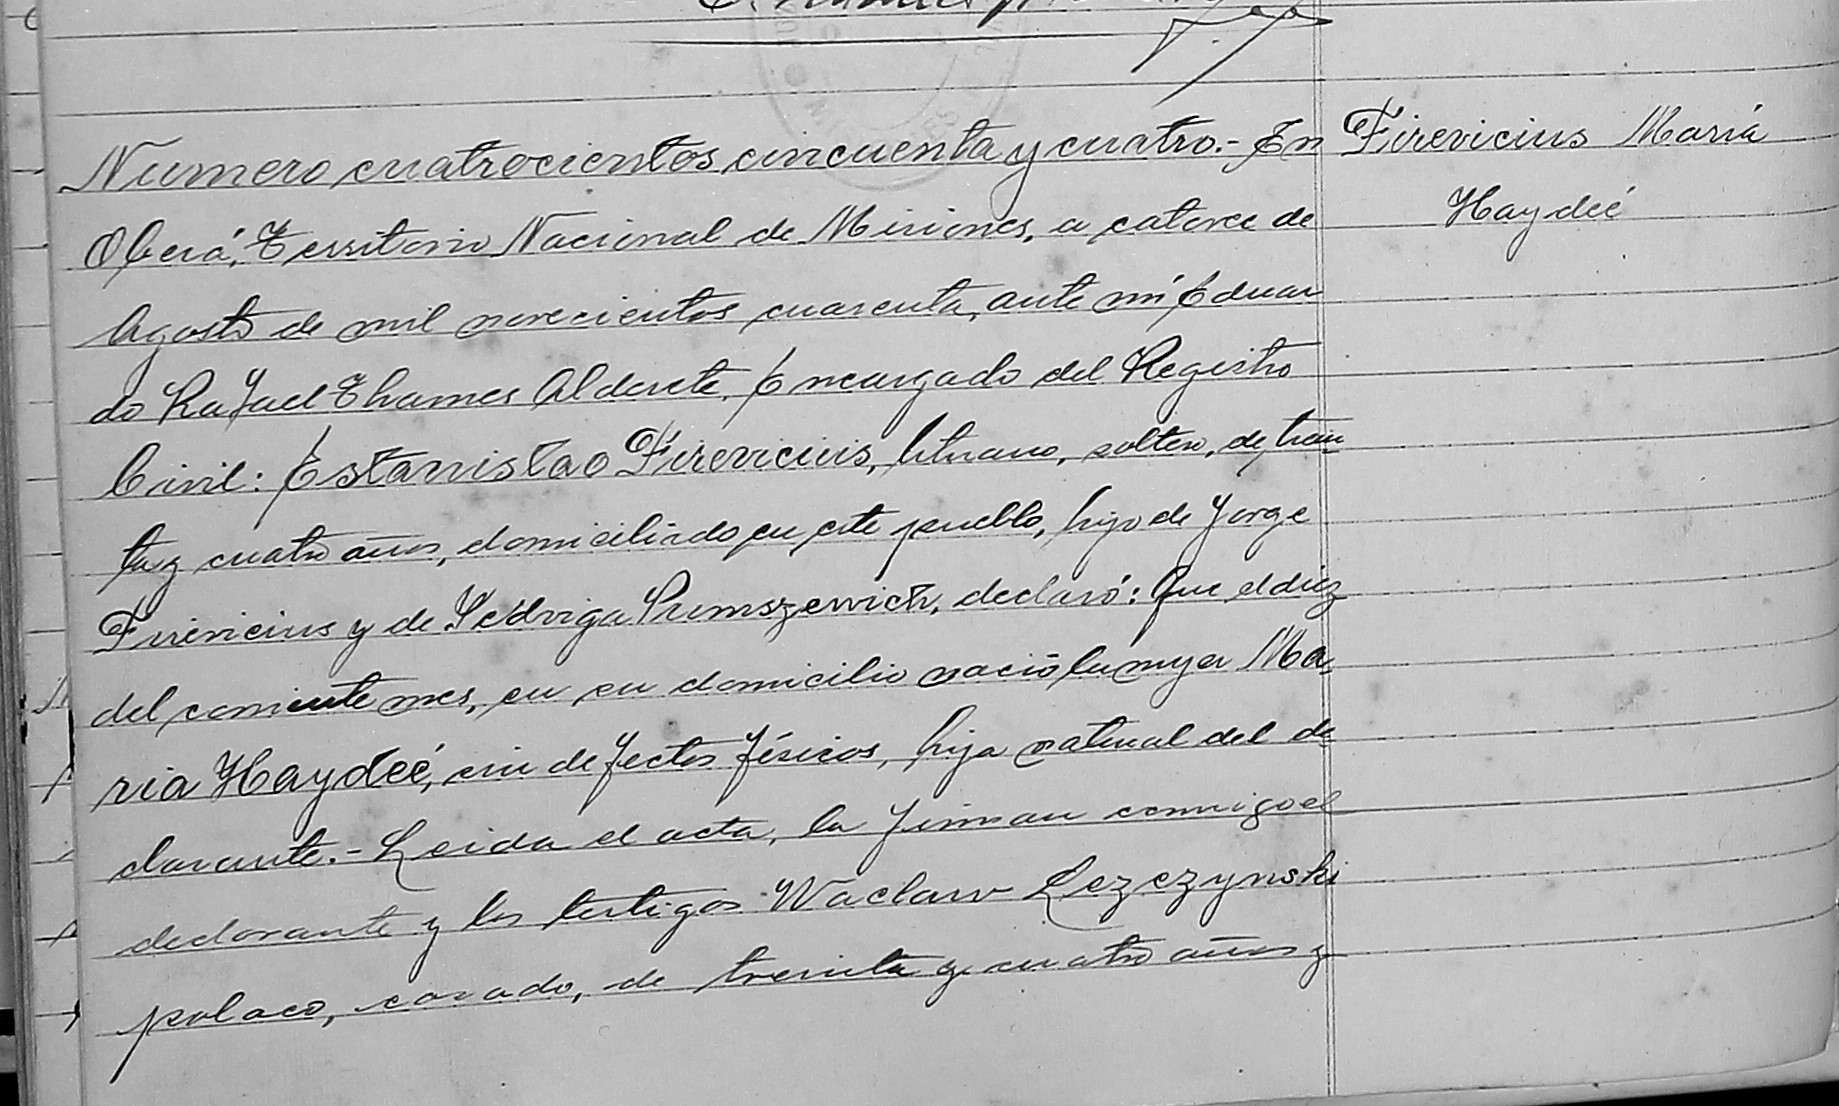 Numero cuatrocientos cincuenta y cuatro.- En
Oberá, Territorio Nacional de Misiones, a catorce de
Agosto de mil novecientos cuarenta, ante mi Eduar
do Rafael Thames Alderete, Encargado del Registro
Civil: Estanislao Firevicius, lituano, soltero, de trein
ta y cuatro años, domiciliado en este pueblo, hijo de Jorge
Firevicius y de Sedviga Rumszewich, declaró: Que el diez
del corriente mes, en su domicilio nació la mujer Ma
ria Haydeé, sin defectos físicos, hija natural del de
clarante.- Leida el acta, la firman conmigo el
declarante y los testigos Waclaw Lezczynski
polaco, casado, de treinta y cuatro años y
Firevicius Mariá
Haydeé